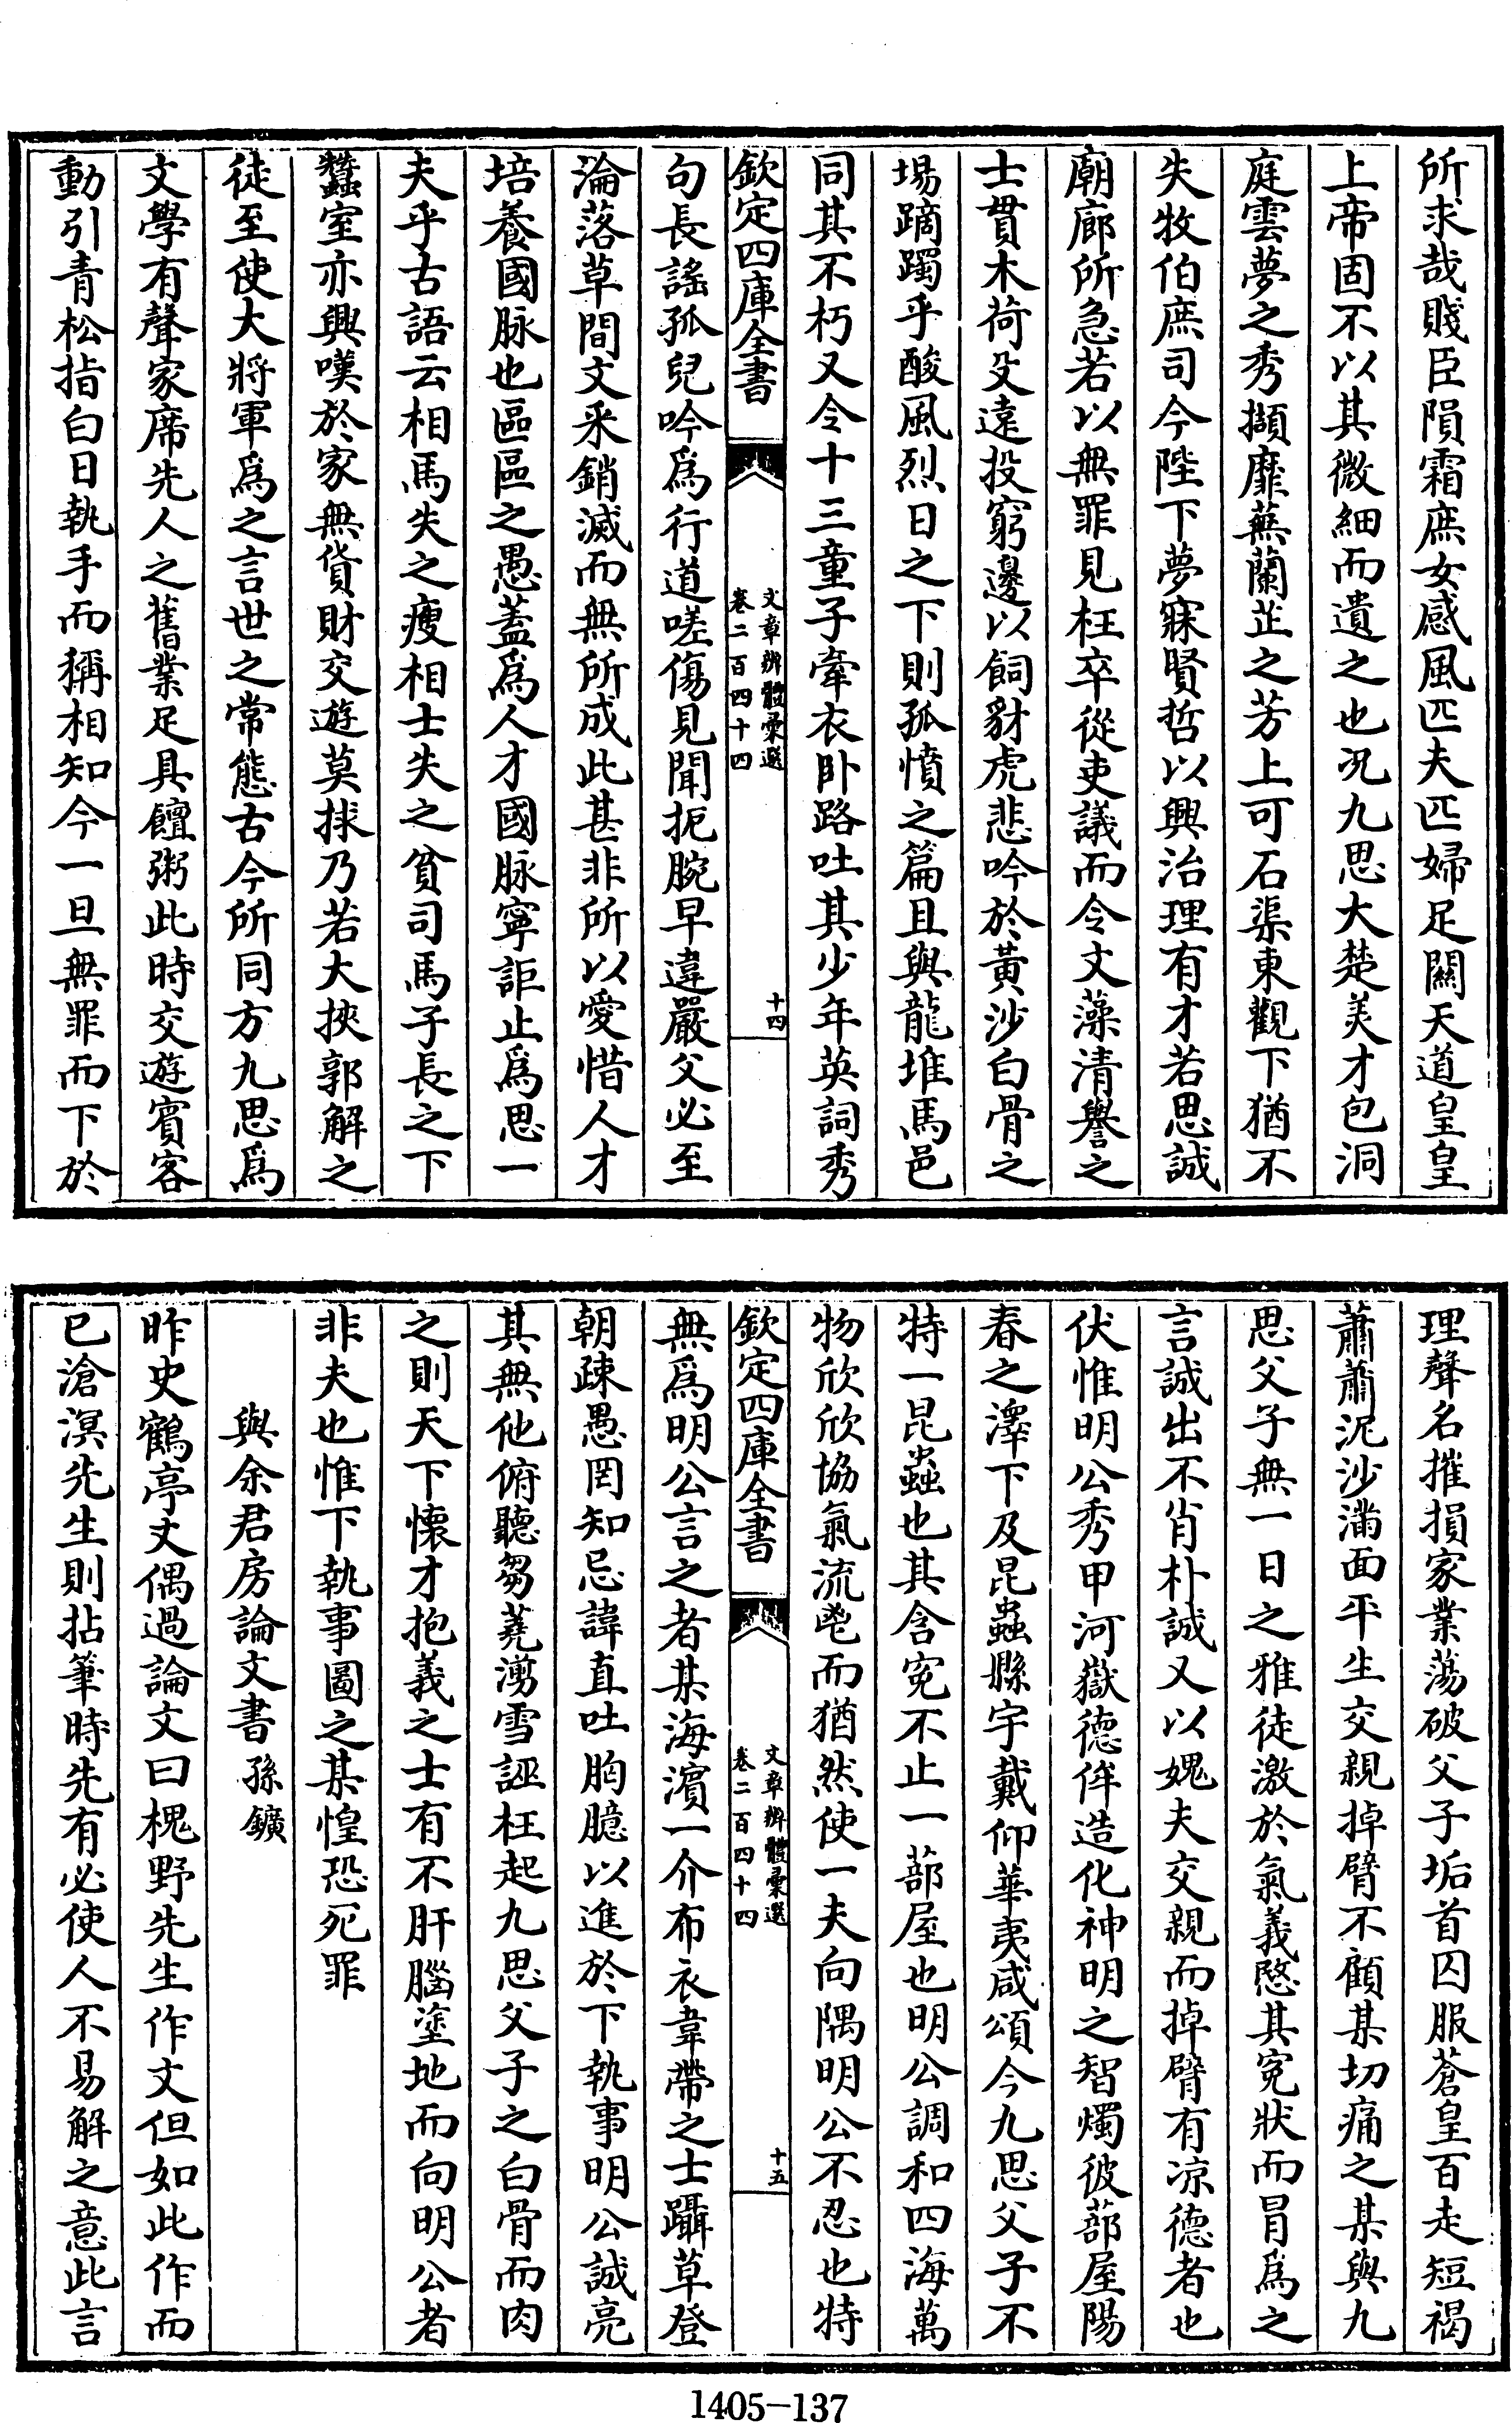 所求哉賤臣隕霜庶女感風匹夫匹婦足關天道皇皇
上帝固不以其微細而遺之也况九思大楚美才包洞
庭雲夢之秀擷靡蕪蘭芷之芳上可石渠東觀下猶不
失牧伯庶司今陛下夢寐賢哲以興治理有才若思誠
廟廊所急若以無罪見枉卒從吏議而令文藻清譽之
士貫木荷殳遠投窮邊以飼豺虎悲吟於黄沙白骨之
場蹢躅乎酸風烈日之下則孤憤之篇且與龍堆馬邑
同其不朽又令十三童子牽衣卧路吐其少年英詞秀
欽定四庫全書
文章辨體彙選
卷二百四十四
十四
句長謠孤兒吟爲行道嗟傷見聞扼腕早違嚴父必至
淪落草間文采銷滅而無所成此甚非所以愛惜人才
培養國脉也區區之愚蓋爲人才國脉寧詎止爲思一
夫乎古語云相馬失之瘦相士失之貧司馬子長之下
蠶室亦興嘆於家無貨財交遊莫捄乃若大挾郭解之
徒至使大將軍爲之言世之常態古今所同方九思爲
文學有聲家席先人之舊業足具饘粥此時交遊賓客
動引青松指白日執手而稱相知今一旦無罪而下於
理聲名摧損家業蕩破父子垢首囚服蒼皇百走短褐
蕭蕭泥沙滿面平生交親掉臂不顧某切痛之某與九
思父子無一日之雅徒激於氣義愍其寃狀而冒爲之
言誠出不肖朴誠又以媿夫交親而掉臂有凉德者也
伏惟明公秀甲河嶽德侔造化神明之智燭彼蔀屋陽
春之澤下及昆蟲縣宇戴仰華夷咸頌今九思父子不
特一昆蟲也其含寃不止一蔀屋也明公調和四海萬
物欣欣協氣流鬯而猶然使一夫向隅明公不忍也特
欽定四庫全書
文章辨體彙選
卷二百四十四
十五
無爲明公言之者某海濱一介布衣韋帶之士躡草登
朝疎愚罔知忌諱直吐胸臆以進於下執事明公誠亮
其無他俯聽芻蕘湔雪誣枉起九思父子之白骨而肉
之則天下懷才抱義之士有不肝腦塗地而向明公者
非夫也惟下執事圖之某惶恐死罪
與余君房論文書 孫鑛
昨史鶴亭丈偶過論文曰槐野先生作文但如此作而
已滄溟先生則拈筆時先有必使人不易解之意此言
1405-137